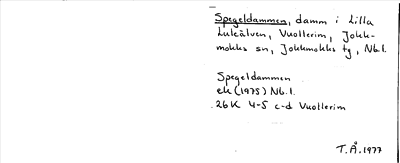 Spegeldammen, damm i Lilla
Luleälven, Vuollerim, Jokk-
mokks sn, Jokkmokks tg, Nb.l.
Spegeldammen
ek (1975) Nb.l.
26K 4-5 c-d Vuollerim
T.Å. 1977